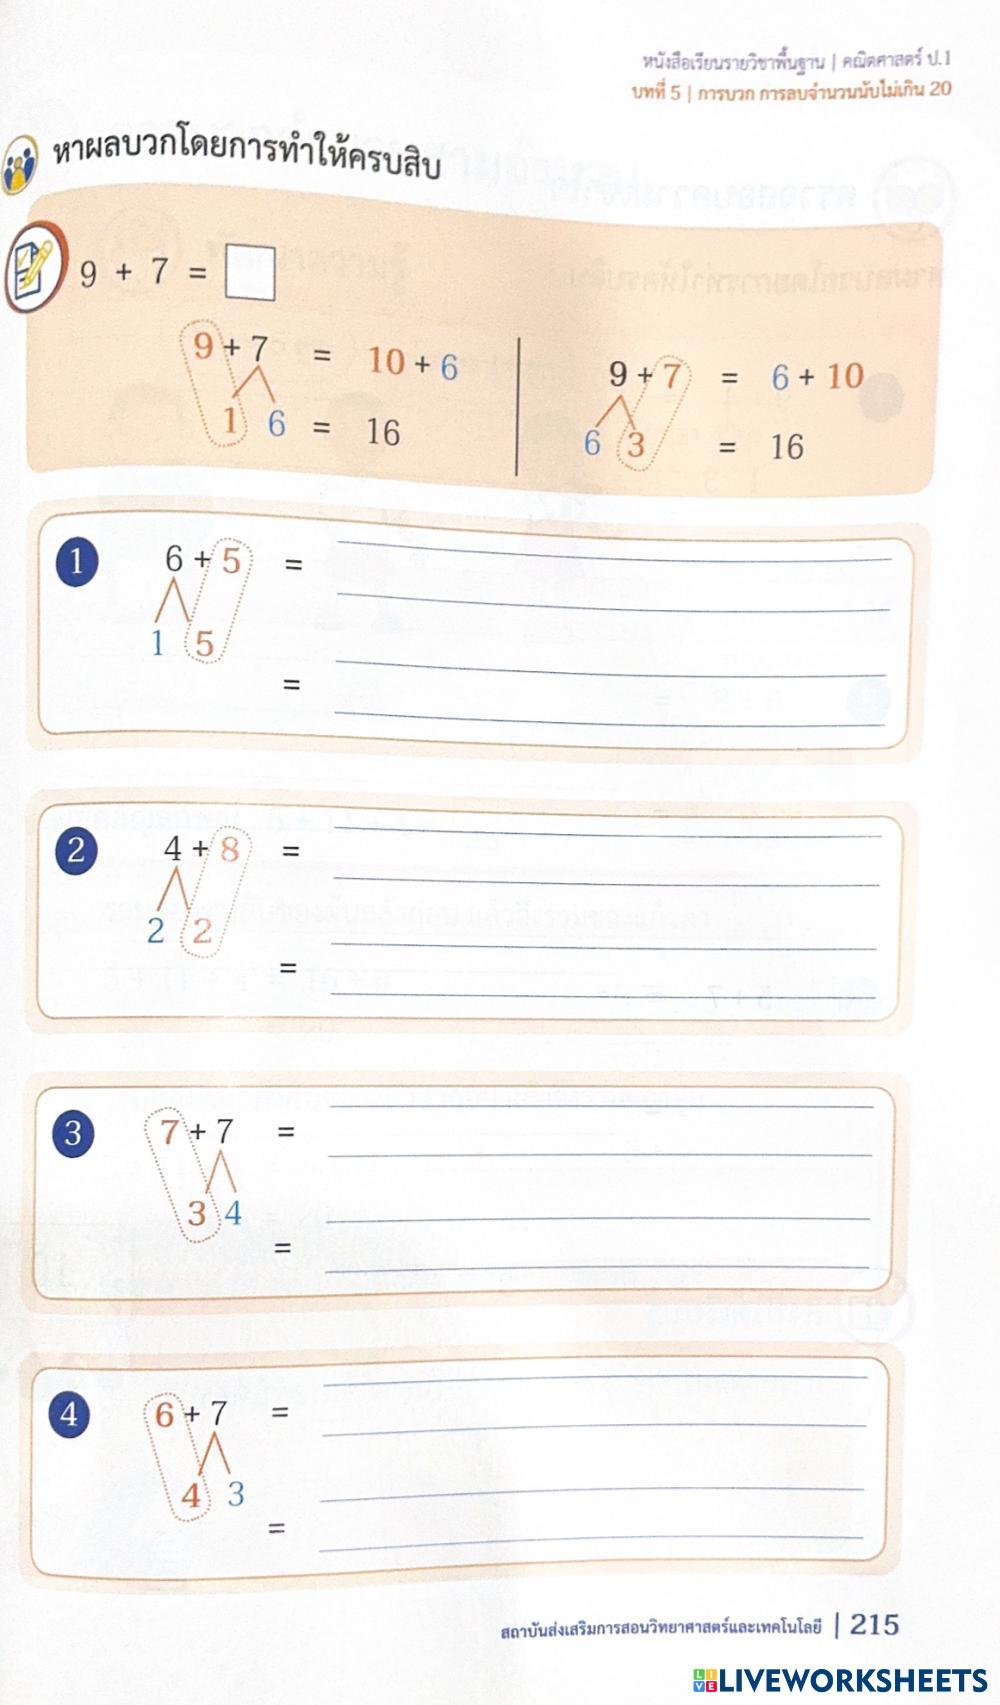 หนังสือเรียนรายวิชาพื้นฐาน | คณิตศาสตร์ ป.1
บทที่ 5 | การบวก การลบจำนวนนับไม่เกิน 20
หาผลบวกโดยการทำให้ครบสิบ
9 + 7 =
9 + 7 = 10 + 6
1 6 = 16
9 + 7 = 6 + 10
6 3 = 16
1 6 + 5 =
1 5
=
2 4 + 8 =
2 2
=
3 7 + 7 =
3 4
=
4 6 + 7 =
4 3
=
สถาบันส่งเสริมการสอนวิทยาศาสตร์และเทคโนโลยี | 215
LIVE LIVEWORKSHEETS